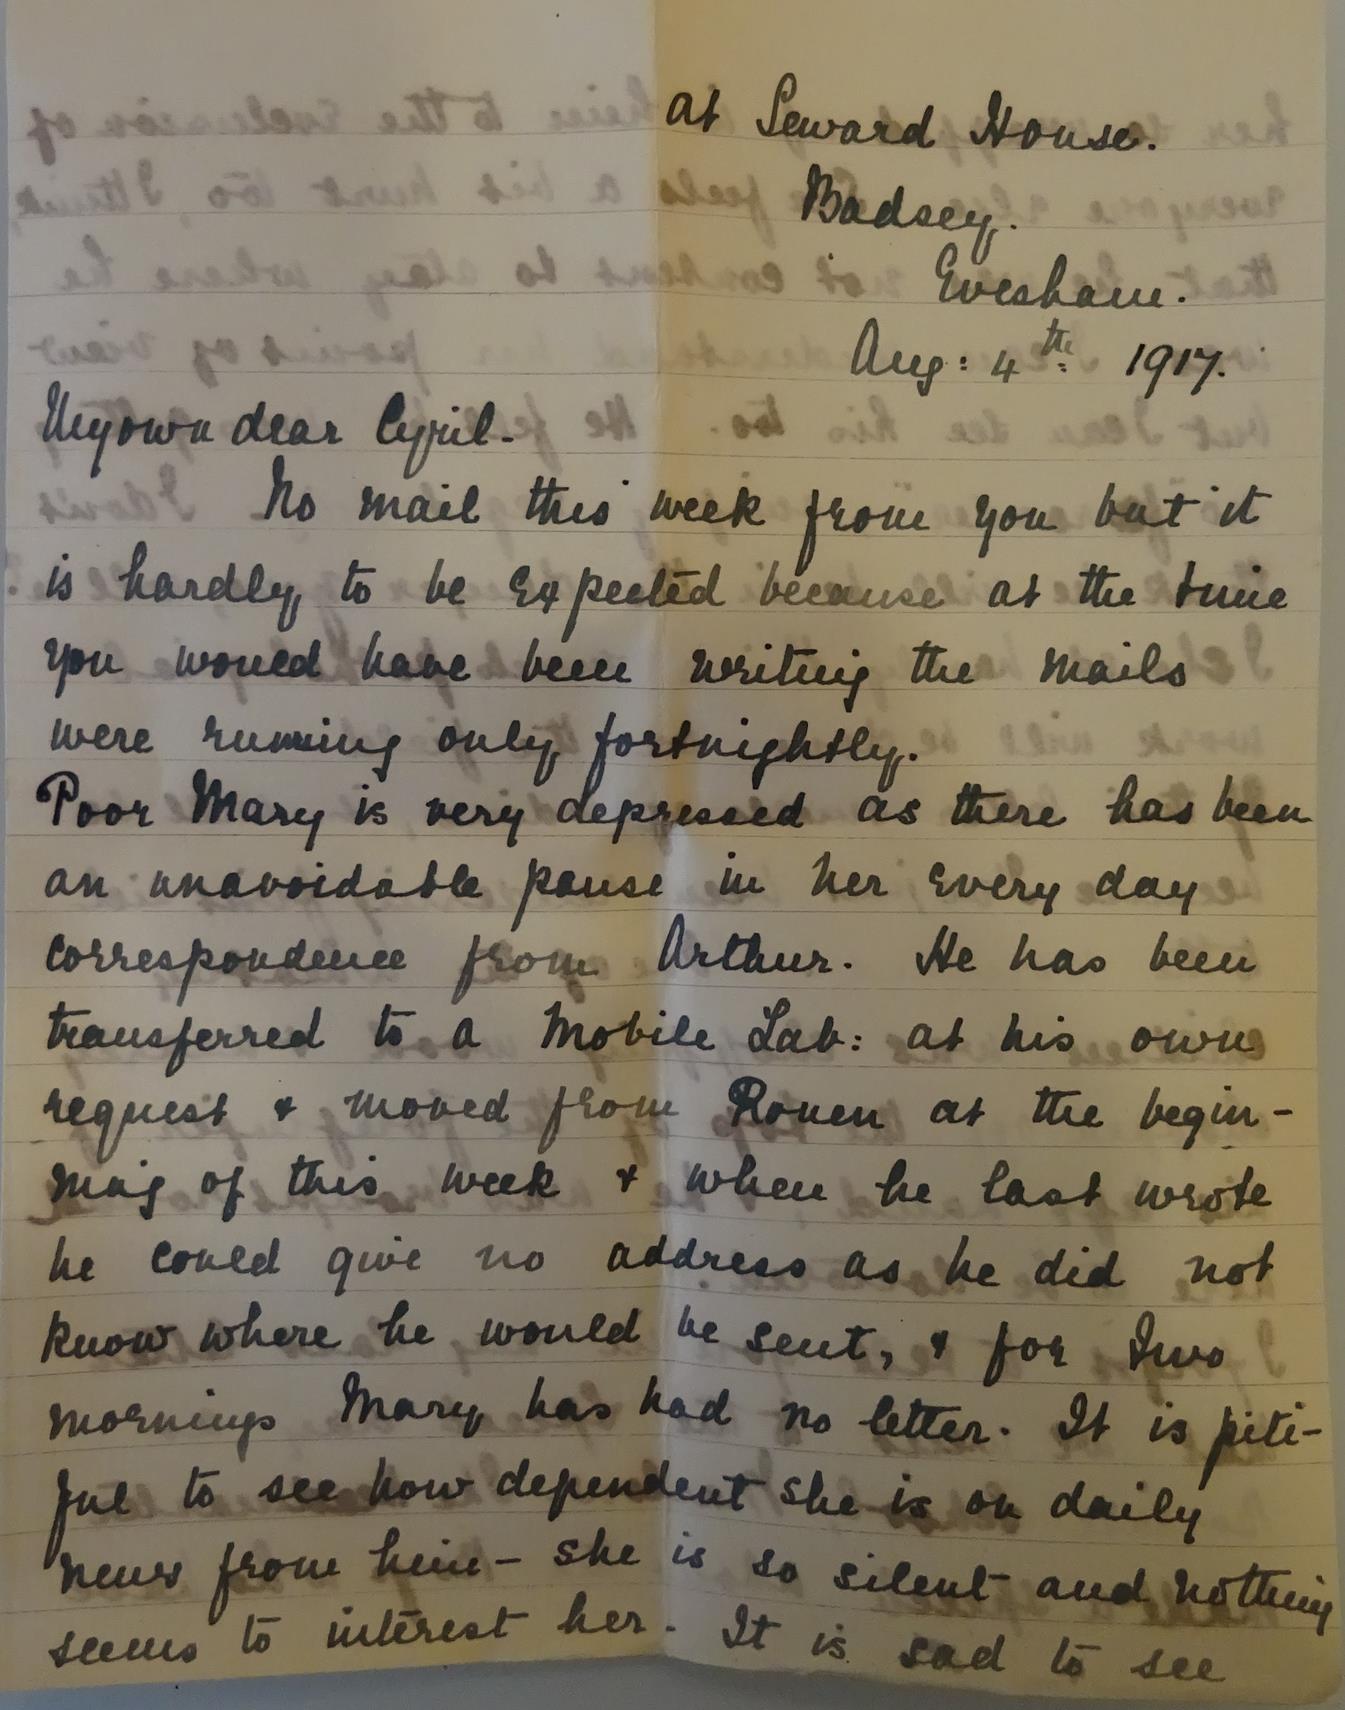 at Seward House.
Badsey.
Evesham.
Aug: 4th: 1917.
My own dear Cyril-
No mail this week from you but it
is hardly to be expected because at the time
you would have been writing the mails
were running only fortnightly.
Poor Mary is very depressed as there has been
an unavoidable pause in her every day
correspondence from Arthur. He has been
transferred to a Mobile Lab: at his own
request & moved from Rouen at the begin-
ning of this week & when he last wrote
he could give no address as he did not
know where he would be sent, & for two
mornings Mary has had no letter. It is piti-
ful to see how dependent she is on daily
news from him - she is so silent and nothing
seems to interest her. It is sad to see